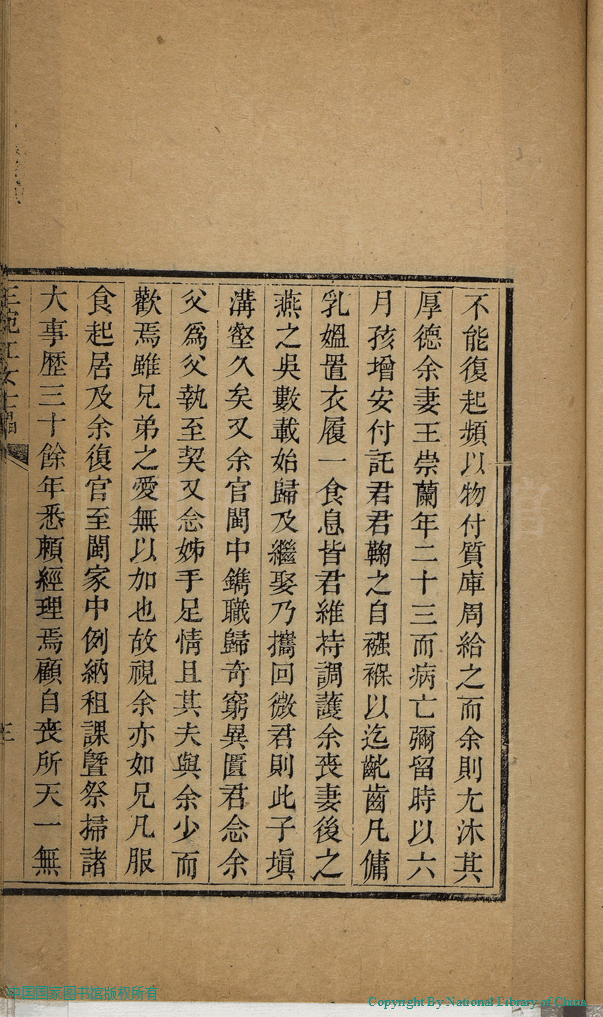 不能復起頻以物付質庫周給之而余則尢沐其
厚德余妻王崇蘭年二十三而病亡彌留時以六
月孩增安付託君君鞠之自襁褓以迄齔齒凡傭
乳媼置衣履一食息皆君維持調護余喪妻後之
燕之吳數載始歸及繼娶乃攜回微君則此子塡
溝壑久矣又余官閩中鐫職歸奇窮異匱君念余
父爲父執至契又念姊手足情且其夫與余少而
歡焉雖兄弟之愛無以加也故視余亦如兄凡服
食起居及余復官至閩家中例納租課曁祭掃諸
大事歷三十餘年悉賴經理焉顧自喪所天一無
中国国家图书馆版权所有
Copyright By National Library of China